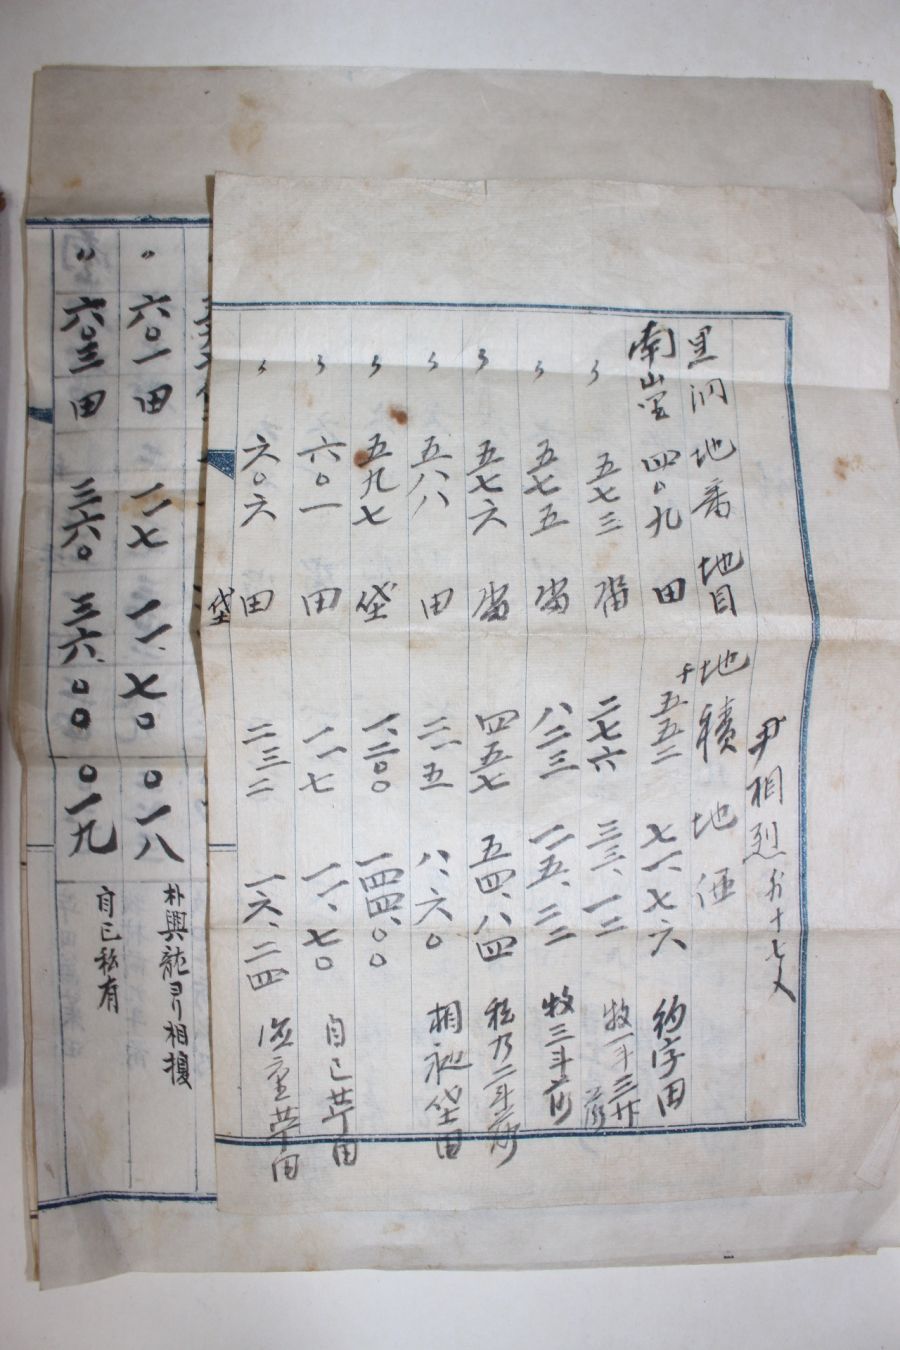 尹相烈 외十七人
里洞 地番 地目 地積 地価
南山里 四〇九 田 十五五二 七一、七六 約字田
〃 五七三 畓 二七六 三三、一二 牧一斗三升落
〃 五七五 畓 八二三 一五、二二 牧三斗落
〃 五七六 畓 四五七 五四、八四 二斗落
〃 五八八 田 二一五 八、六〇 相昶垈田
〃 五九七 垈 一、二〇〇 一四四、〇〇
〃 六〇一 田 一一七 一一、七〇 自己苧田
〃 六〇六 田 二三二 一六、二四 苧田
垈
〃 六〇一 田 一一七 一一、七〇 〇一八 朴興龍ヨリ相換
〃 六〇三 田 三六〇 三六、〇〇 〇一九 自己私有